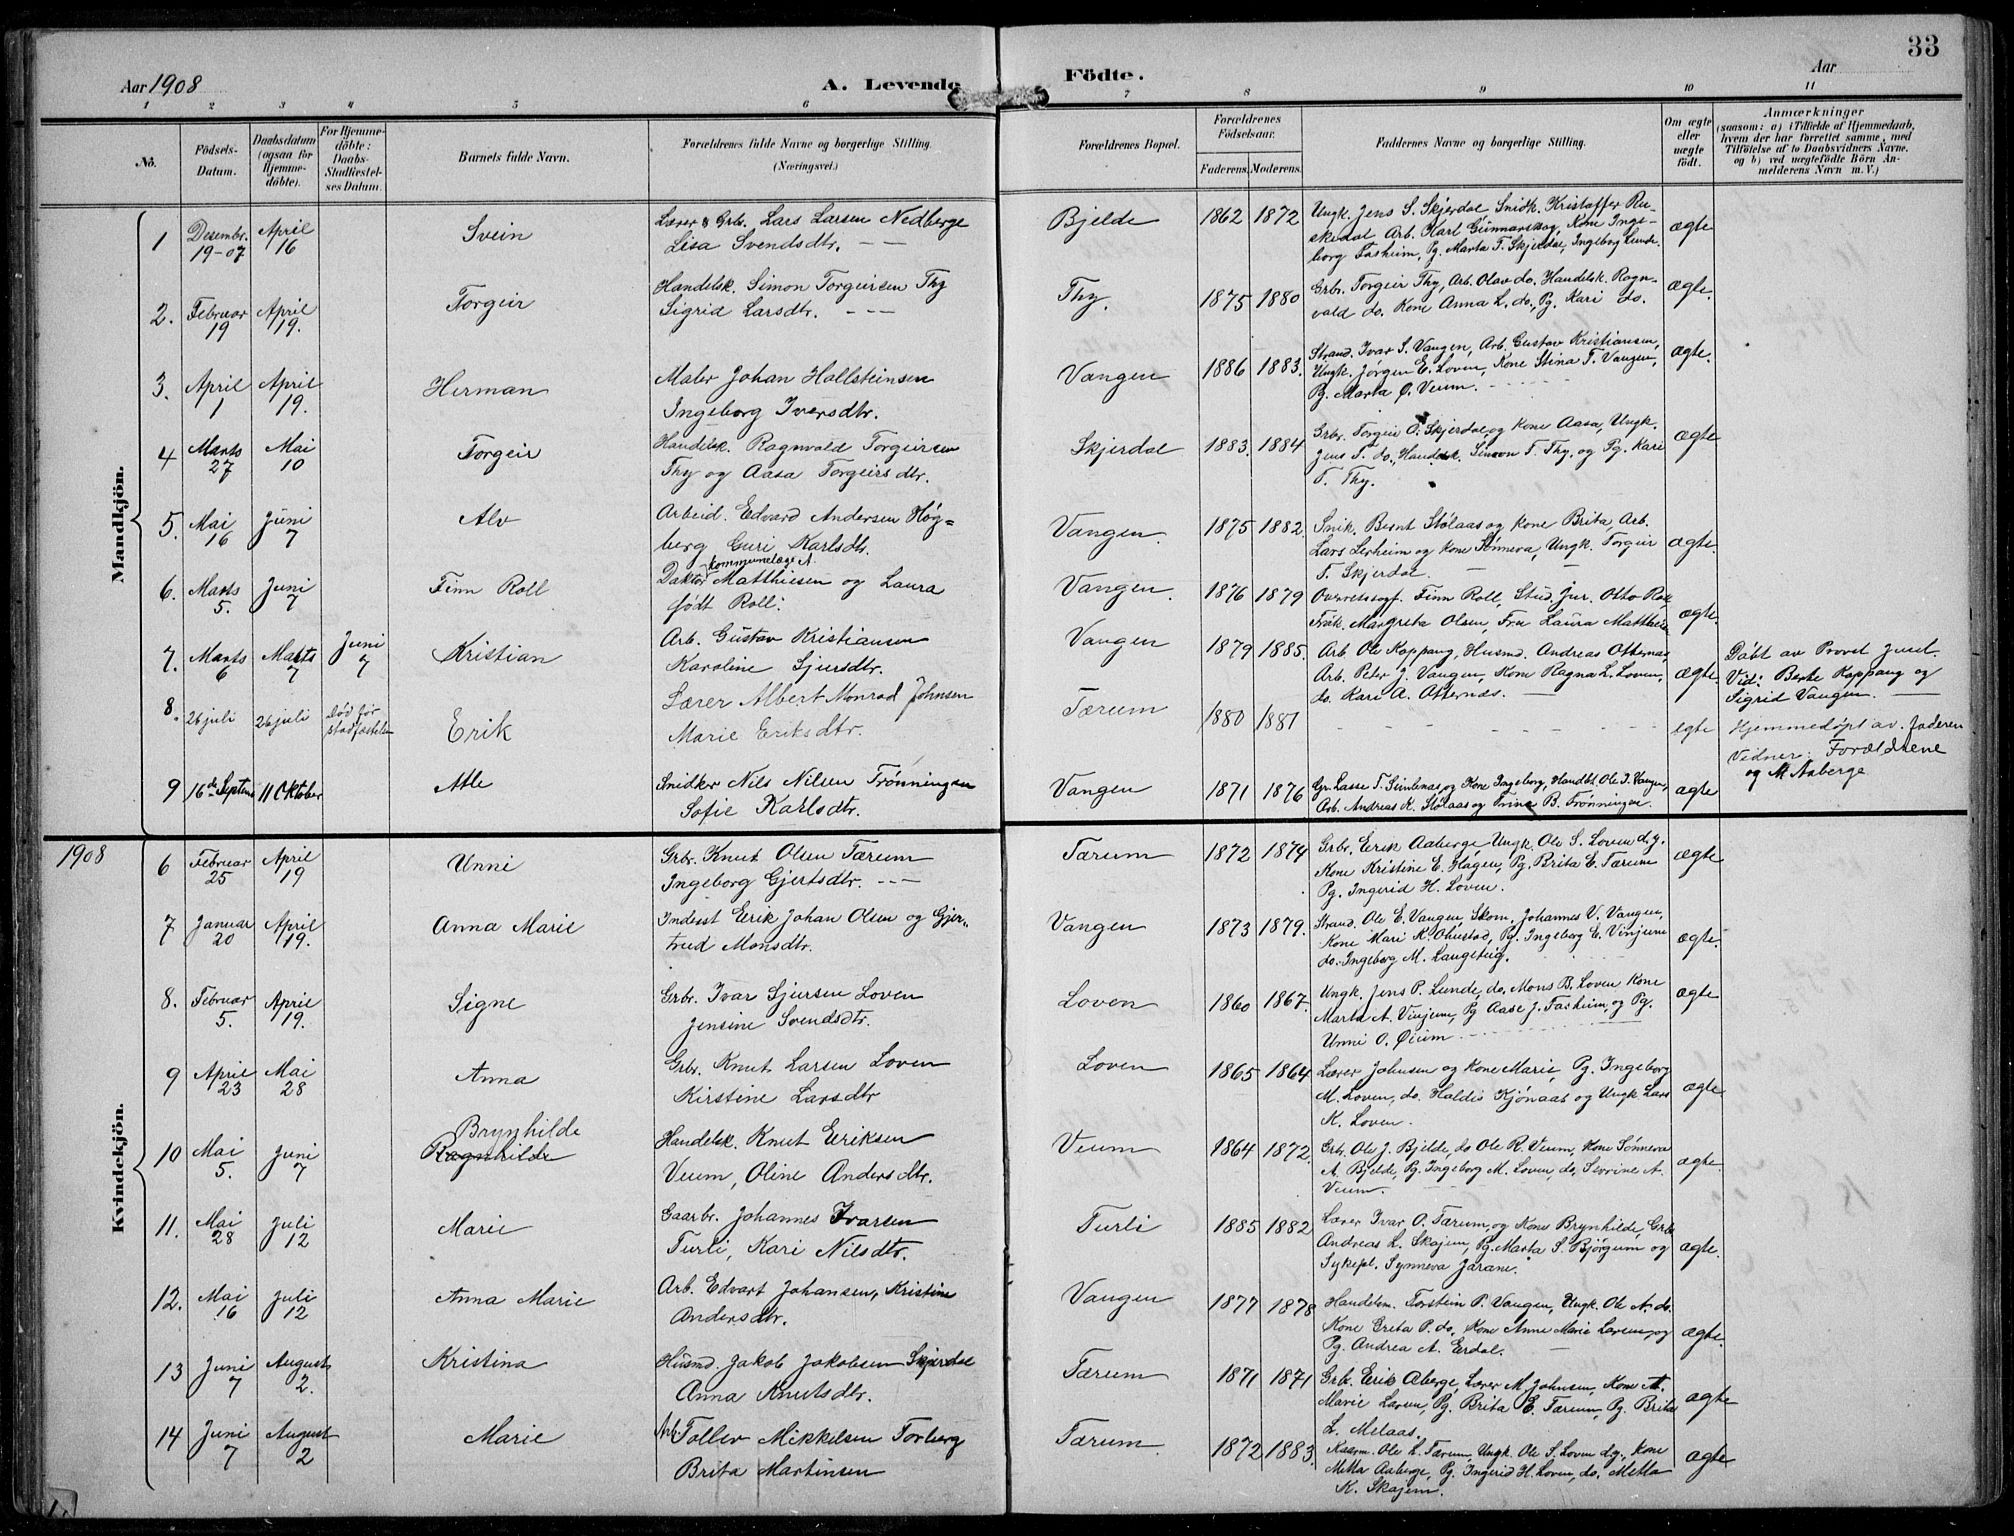 33
Aar 1908
A. Levende Födte.
Aar
1 2 3 4 5 6 7 8 9 10 11
No.
Födsels-Datum.
Daabsdatum (ogsaa for Hjemme-döbte).
For Hjemme-döbte: Daabs-Stadfæstel-ses Datum.
Barnets fulde Navn.
Forældrenes fulde Navne og borgerlige Stilling.
(Næringsvei.)
Forældrenes Bopæl.
Forældrenes Födselsaar.
Faderens. Moderens.
Faddernes Navne og borgerlige Stilling.
Om ægte eller uægte födt.
Anmærkninger
(saasom: a) i Tilfælde af Hjemmedaab, hvem der har forrettet samme, med Tilföielse af to Daabsvidners Navne. og b) ved uægtefödte Börn An-melderens Navn m. V.)
Mandkjön.
1 Desembr. 19-07 April 16 Svein
Lærer & Grb. Lars Larsen Nedberge
Lisa Svendsdtr. — —
Bjelde 1862 1872
Ungk. Jens S. Skjerdal, Snidk. Kristoffer Ru-
skedal Arb. Karl Gunnarskog, Kone Inge-
borg Fasheim, Pg. Marta T. Skjerdal, Ingeborg Lunde.
ægte
2. Februar 19 April 19. Torgeir
Handelsk. Simon Torgeirsen Thy
Sigrid Larsdtr. — — —
Thy. 1875 1880
Grb. Torgeir Thy, Arb. Olav do. Handelsk. Ragn-
vald do. Kone Anna L. do., Pg. Kari do.
ægte.
3. April 1 April 19. Herman
Maler Johan Hallsteinsen
Ingeborg Iversdtr.
Vangen 1886 1883.
Strand. Ivar S. Vangen, Arb. Gustav Kristiansen,
Ungk. Jørgen E. Loven, Kone Stina T. Vangen,
Pg. Marta O. Veum.
ægte.
4 Marts 27 Mai 10 Torgeir
Handelsk. Ragnvald Torgeirsen
Thy og Aasa Torgeirsdtr.
Skjerdal 1883. 1884
Grb. Torgeir O. Skjerdal og Kone Aasa, Ungk.
Jens T. do., Handelsk. Simon T. Thy. og Pg. Kari
T. Thy.
ægte
5. Mai 16 Juni 7 Alv
Arbeid. Edvard Andersen Høg=
berg Guri Karlsdtr.
Vangen 1875 1882.
Snik. Bernt Stølaas og kone Brita, Arb.
Lars Lerheim og kone Sønneva, Ungk. Torgeir
T. Skjerdal.
ægte.
6. Marts 5. Juni 7 Finn Roll
kommunelæge A.
Doktor Matthiesen og Laura
født Roll.
Vangen. 1876 1879
Overretssagf. Finn Roll, Stud. jur. Otto Roll,
Frøk. Margreta Olsen, Fru Laura Matthiesen
ægte.
7. Marts 6 Marts 7 Juni 7 Kristian
Arb. Gustav Kristiansen
Karoline Sjursdtr.
Vangen 1879 1885.
Arb. Ole Koppang, Husmd. Andreas Otternæs,
Arb. Peter J. Vangen, Kone Ragna L. Loven,
do. Kari A. Otternæs.
ægte.
Døbt av Provst Juul.
Vid: Berte Koppang og
Sigrid Vangen.
8. 26 juli 26 juli Død før stadfæstelsen Erik
Lærer Albert Monrad Johnsen
Marie Eriksdtr.
Tærum 1880 1881
egte
Hjemmedøpt av faderen
Vidner: Forældrene
og M. Aaberge
9 16de Septem 11 Oktober Atle
Snidker Nils Nilsen Trønningen
Sofie Karlsdtr.
Vangen 1871 1876
Gr. Lasse T. Simlenæs og Kone Ingeborg, Handbt. Ole I. Vangen,
Arb. Andreas K. Stølaas og Trine B. Trønningen.
ægte
1908
Kvindekjön.
6 Februar 25 April 19 Unni
Grb. Knut Olsen Tærum
Ingeborg Gjertsdtr. — —
Tærum 1872 1874
Grb. Erik Aaberge, Ungk. Ole S. Loven d.y.
Kone Kristine E. Hagen, Pg. Brita E. Tærum
Pg. Ingerid H. Loven.
ægte
7 Januar 20 April 19. Anna Marie
Inderst Erik Johan Olsen og Gjer-
trud Monsdtr.
Vangen 1873 1879.
Strand. Ole E. Vangen, Skom. Johannes V. Vangen,
Kone Mari K. Ohnstad, Pg. Ingeborg E. Vinjum
do. Ingeborg M. Langeteig.
ægte.
8. Februar 5. April 19. Signe
Grb. Ivar Sjursen Loven
Jensine Svendsdtr.
Loven 1860 1867.
Ungk. Jens P. Lunde, do. Mons B. Loven Kone
Marta A. Vinjum, Pg Aase J. Fasheim, og Pg.
Unni O. Øium.
ægte
9 April 23 Mai 28 Anna
Grb. Knut Larsen Loven
Kirstine Larsdtr
Loven 1865 1864
Lærer Johnsen og Kone Marie, Pg. Ingeborg
M. Loven, do. Haldis Kjønaas og Ungk. Lars
K. Loven.
ægte
10 Mai 5. Juni 7 Brynhilde
Ragnhilde
Handelsk. Knut Eriksen
Veum, Oline Andersdtr.
Veum 1864 1872.
Grb. Ole J. Bjelde, do Ole R. Veum, Kone Sønneva
A. Bjelde, Pg. Ingeborg M. Loven, do. Sevrine A.
Veum.
ægte.
11. Mai 28 Juli 12 Marie
Gaarbr. Johannes Ivarsen
Turli, Kari Nilsdtr.
Turli 1885 1882
Lærer Ivar O. Tærum, og Kone Brynhilde, Grb.
Andreas L. Skajem, Pg. Marta S. Bjørgum og
Sykepl. Synneva Jarane.
ægte.
12. Mai 16 Juli 12 Anna Marie
Arb. Edvart Johansen, Kristine
Andersdtr.
Vangen 1877 1878
Handelsm. Torstein P. Vangen, Ungk. Ole A. do.
Kone Greta P. do. Kone Anne Marie Loven, og
Pg. Andrea A. Erdal.
ægte.
13 Juni 7 August 2. Kristina
Husmd. Jakob Jakobsen Skjerdal
Anna Knutsdtr.
Tærum 1871 1871
Grb. Erik Aberge, Lærer M. Johnsen, Kone A.
Marie Loven, Pg. Brita E. Tærum, Pg. Brita
L. Melaas.
ægte
14 Juni 7 August 2 Marie
Arb. Toller Mikkelsen Torberg
Brita Martinsen
Tærum 1872 1883.
Kaarm. Ole L. Tærum, Ungk. Ole S. Loven d.y., Kone
Metta Aaberge, Pg. Ingerid H. Loven, do. Metta
K. Skajem.
ægte